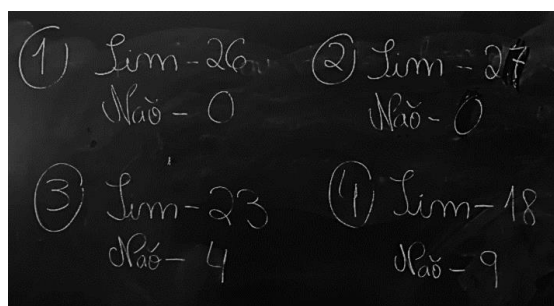 1 Sim - 26
Não - 0
2 Sim - 27
Não - 0
3 Sim - 23
Não - 4
4 Sim - 18
Não - 9